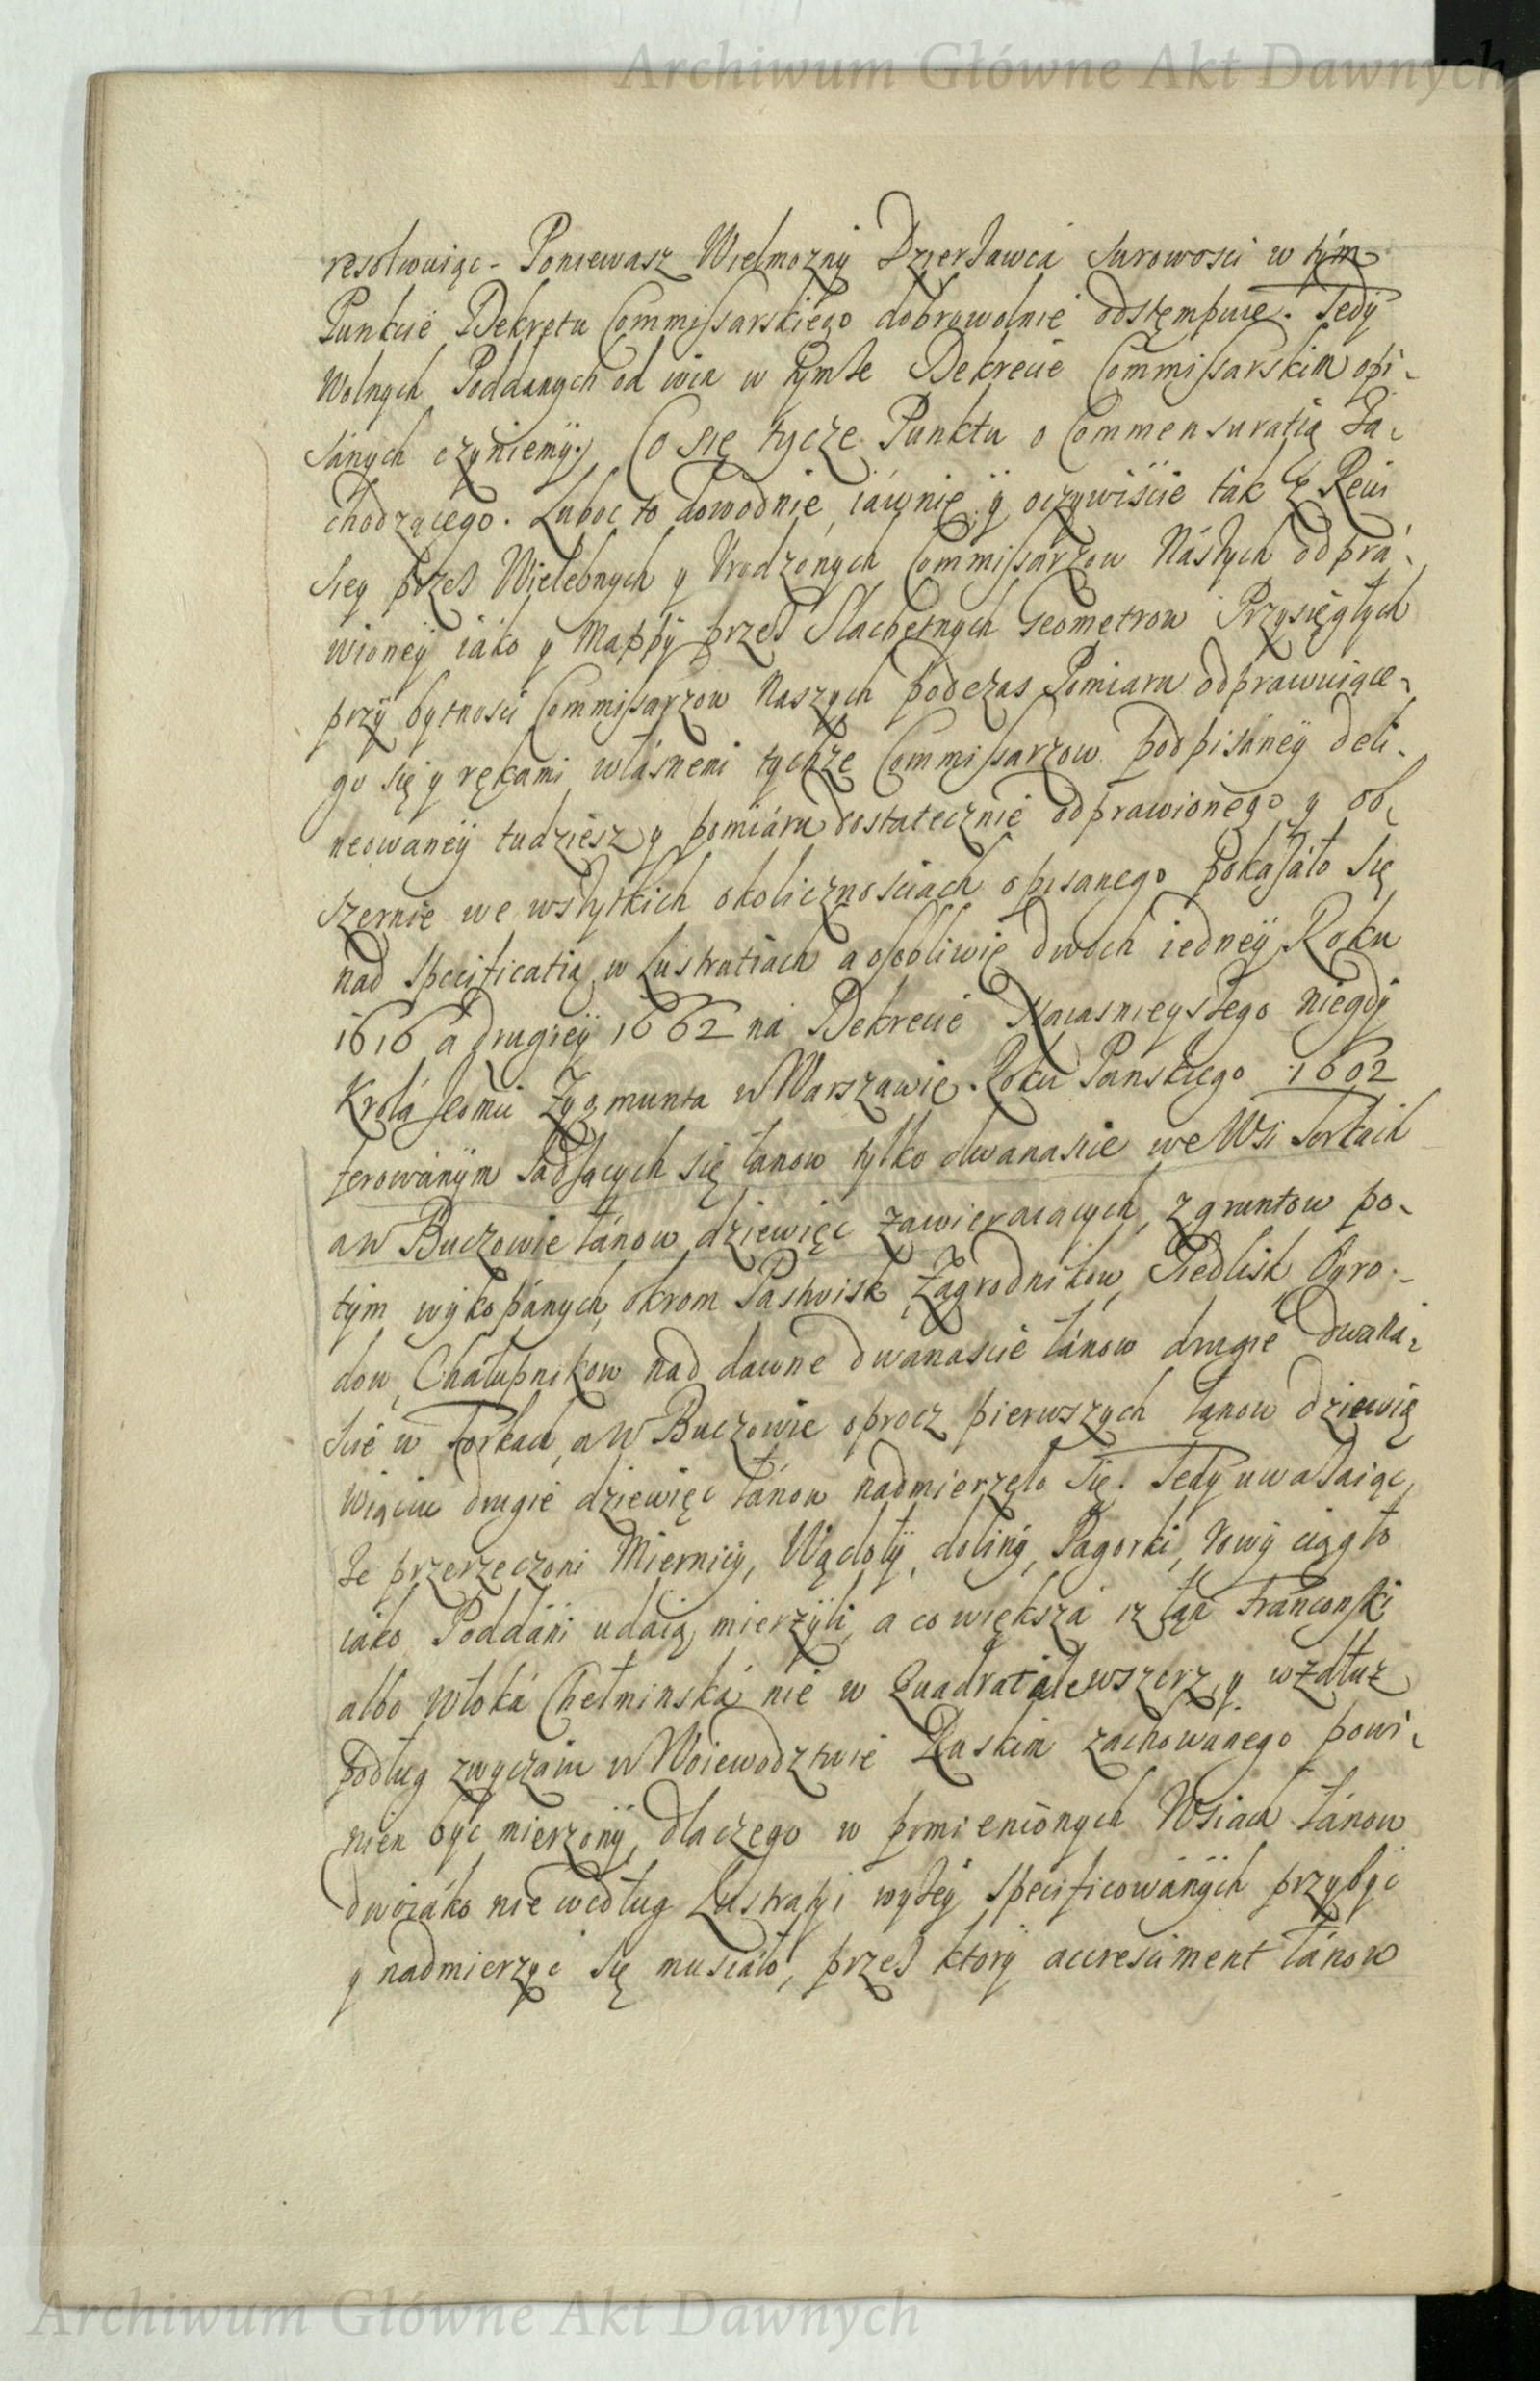 Archiwum Główne Akt Dawnych
resolwuiąc - Poniewasz Wielmozny Dzierżawca surowosci w tym
Punkcie Dekretu Commissarskiego dobrowolnie odstempuie. Tedÿ
Wolnych Poddanych od win w tymże Dekrecie Commissarskim opi-
sánych czyniemÿ. Co się tycze Punktu o Commensuratią Za-
chodzącego. Luboc to dowodnie, iáwnie ÿ oczywiście tak z Rewi
sieÿ przez Wielebnych y Vrodzonych Commissárzow Nászych odprá-
wioneÿ iáko y Mappÿ przez Slachetnych Geometrow Przysięgłych
przÿ bytnosci Commissarzow Naszych podczas Pomiaru odprawuiące-
go się y rękami własnemi tychże Commissarzow podpisáneÿ deli-
neowaneÿ tudziesz y pomiáru dostatecznie odprawionego y ob-
szernie we wszytkich okolicznosciach opisanego pokazáło się
nad Specificatią w Lustratiach a osobliwie dwoch iedneÿ Roku
1616 á drugieÿ 1662 ná Dekrecie Naiasnieyszego niegdy
Krolá Jeomci Zygmunta w Warszawie Roku Pańskiego 1602
ferowánÿm sadzących się łanow tylko dwanascie we Wsi Torkach
a w Buczowie łánow dziewięc zawieraiących, z gruntow po-
tÿm wÿkopánych, okrom Pastwisk, Zagrodnikow, Siedlisk, Ogro-
dow, Chałupnikow nad dawne dwanascie łánow drugie dwaná-
scie w Torkach, a w Buczowie oprocz pierwszych łanow dziewią
wiąciu drugie dziewięc łánow nadmierzeło się. Tedÿ uwazaiąc,
że przerzeczoni Miernicÿ, Wądołÿ, dolinÿ, Pagorki, Rowÿ ciągło
iako Poddáni udaią mierzÿli, a co większa iz łan Franconski
albo włoká Chełminská nie w Quadrat ale wszerz y wzdłuz
podług zwyczáiu w Woiewodztwie Ruskim zachowánego powi-
nien bÿc mierzonÿ, dlaczego w pomienionych Wsiach łánow
dwoiáko nie według Lustratÿi wyżeÿ specificowánÿch przybÿc
y nadmierzyc się musiáło, przez ktorÿ accresciment łánow
Archiwum Główne Akt Dawnych